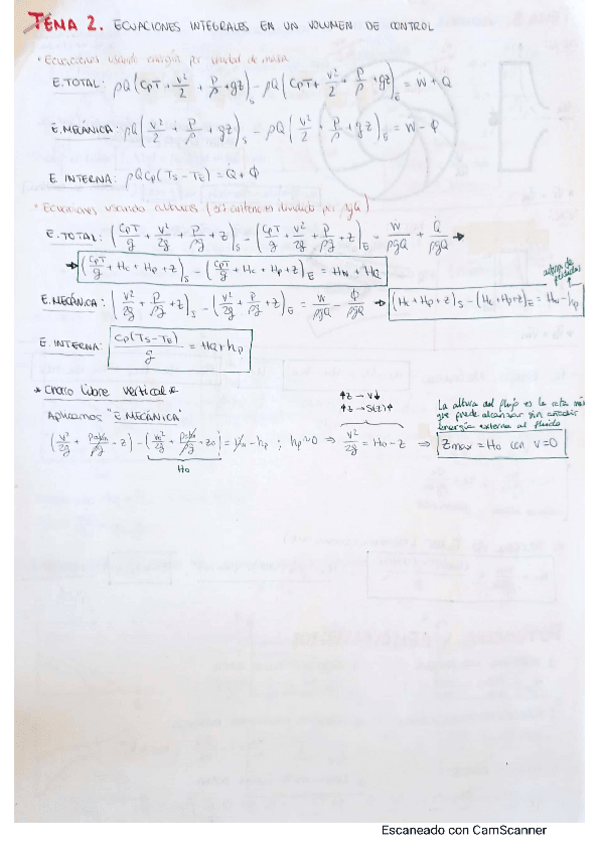 TEMA 2. ECUACIONES INTEGRALES EN UN VOLUMEN DE CONTROL
• Ecuaciones usando energía por unidad de masa
E. TOTAL: ρQ(CpT + v²/2 + P/ρ + gz)s - ρQ(CpT + v²/2 + P/ρ + gz)E = Ẇ + Q̇
E. MECÁNICA: ρQ(v²/2 + P/ρ + gz)s - ρQ(v²/2 + P/ρ + gz)s = Ẇ - Φ
E INTERNA: ρQCp(Ts - TE) = Q + Φ
• Ecuaciones usando alturas (si anterior es dividido por ρgQ)
E. TOTAL: (CpT/g + v²/2g + P/ρg + z)s - (CpT/g + v²/2g + P/ρg + z)E = Ẇ/ρgQ + Q̇/ρgQ →
→ (CpT/g + Hc + Hp + z)s - (CpT/g + Hc + Hp + z)E = Hw + HQ
altura de pérdidas
E. MECÁNICA: (v²/2g + P/ρg + z)s - (v²/2g + P/ρg + z)E = Ẇ/ρgQ - Φ/ρgQ → (Hc + Hp + z)s - (Hc + Hp + z)E = Hw - hp
E. INTERNA: Cp(Ts - TE)/g = HQ + hp
* Chorro libre vertical *
Aplicamos "E MECÁNICA"
↑z → v↓
↑z → S(z)↑
La altura del flujo es la cota máx
que puede alcanzar sin añadir
energía externa al fluido
(v²/2g + Patm/ρg - z) - (v₀²/2g + Patm/ρg + z₀) = Hw - hp ; hp≈0 ⇒ v²/2g = H₀ - z ⇒ Zmax = H₀ con v=0
H₀
Escaneado con CamScanner